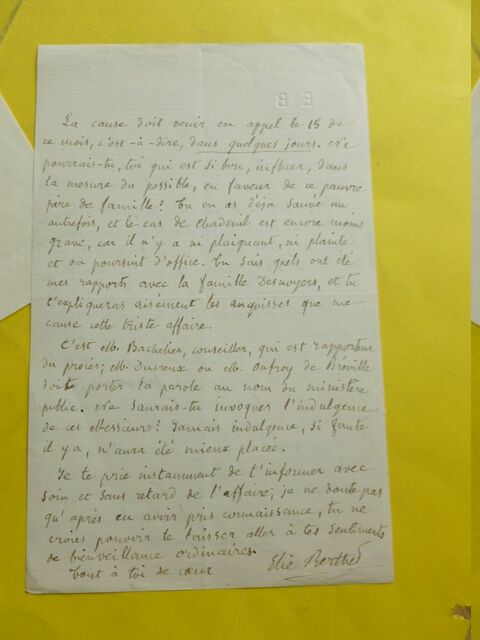 E B
La cause doit venir en appel le 15 de
ce mois, c'est-à-dire, dans quelques jours. Ne
pourrais-tu, toi qui est si bon, influer, dans
la mesure du possible, en faveur de ce pauvre
père de famille? Tu en as déjà sauvé un
autrefois, et le cas de Chadeuil est encore moins
grave, car il n'y a ni plaignant, ni plainte
et on poursuit d'office. Tu sais quels ont été
mes rapports avec la famille Desnoyers, et tu
t'expliqueras aisément les angoisses que me
cause cette triste affaire.
C'est M. Bachelier, conseiller, qui est rapporteur
du procès; M. Ducreux ou M. Onfroy de Bréville
doit porter la parole au nom du ministère
public. Ne saurais-tu invoquer l'indulgence
de ces Messieurs? Jamais indulgence, si faute
il y a, n'aura été mieux placée.
Je te prie instamment de t'informer avec
soin et sans retard de l'affaire; je ne doute pas
qu'après en avoir pris connaissance, tu ne
croies pouvoir te laisser aller à tes sentiments
de bienveillance ordinaires.
Tout à toi de cœur
Elie Berthet